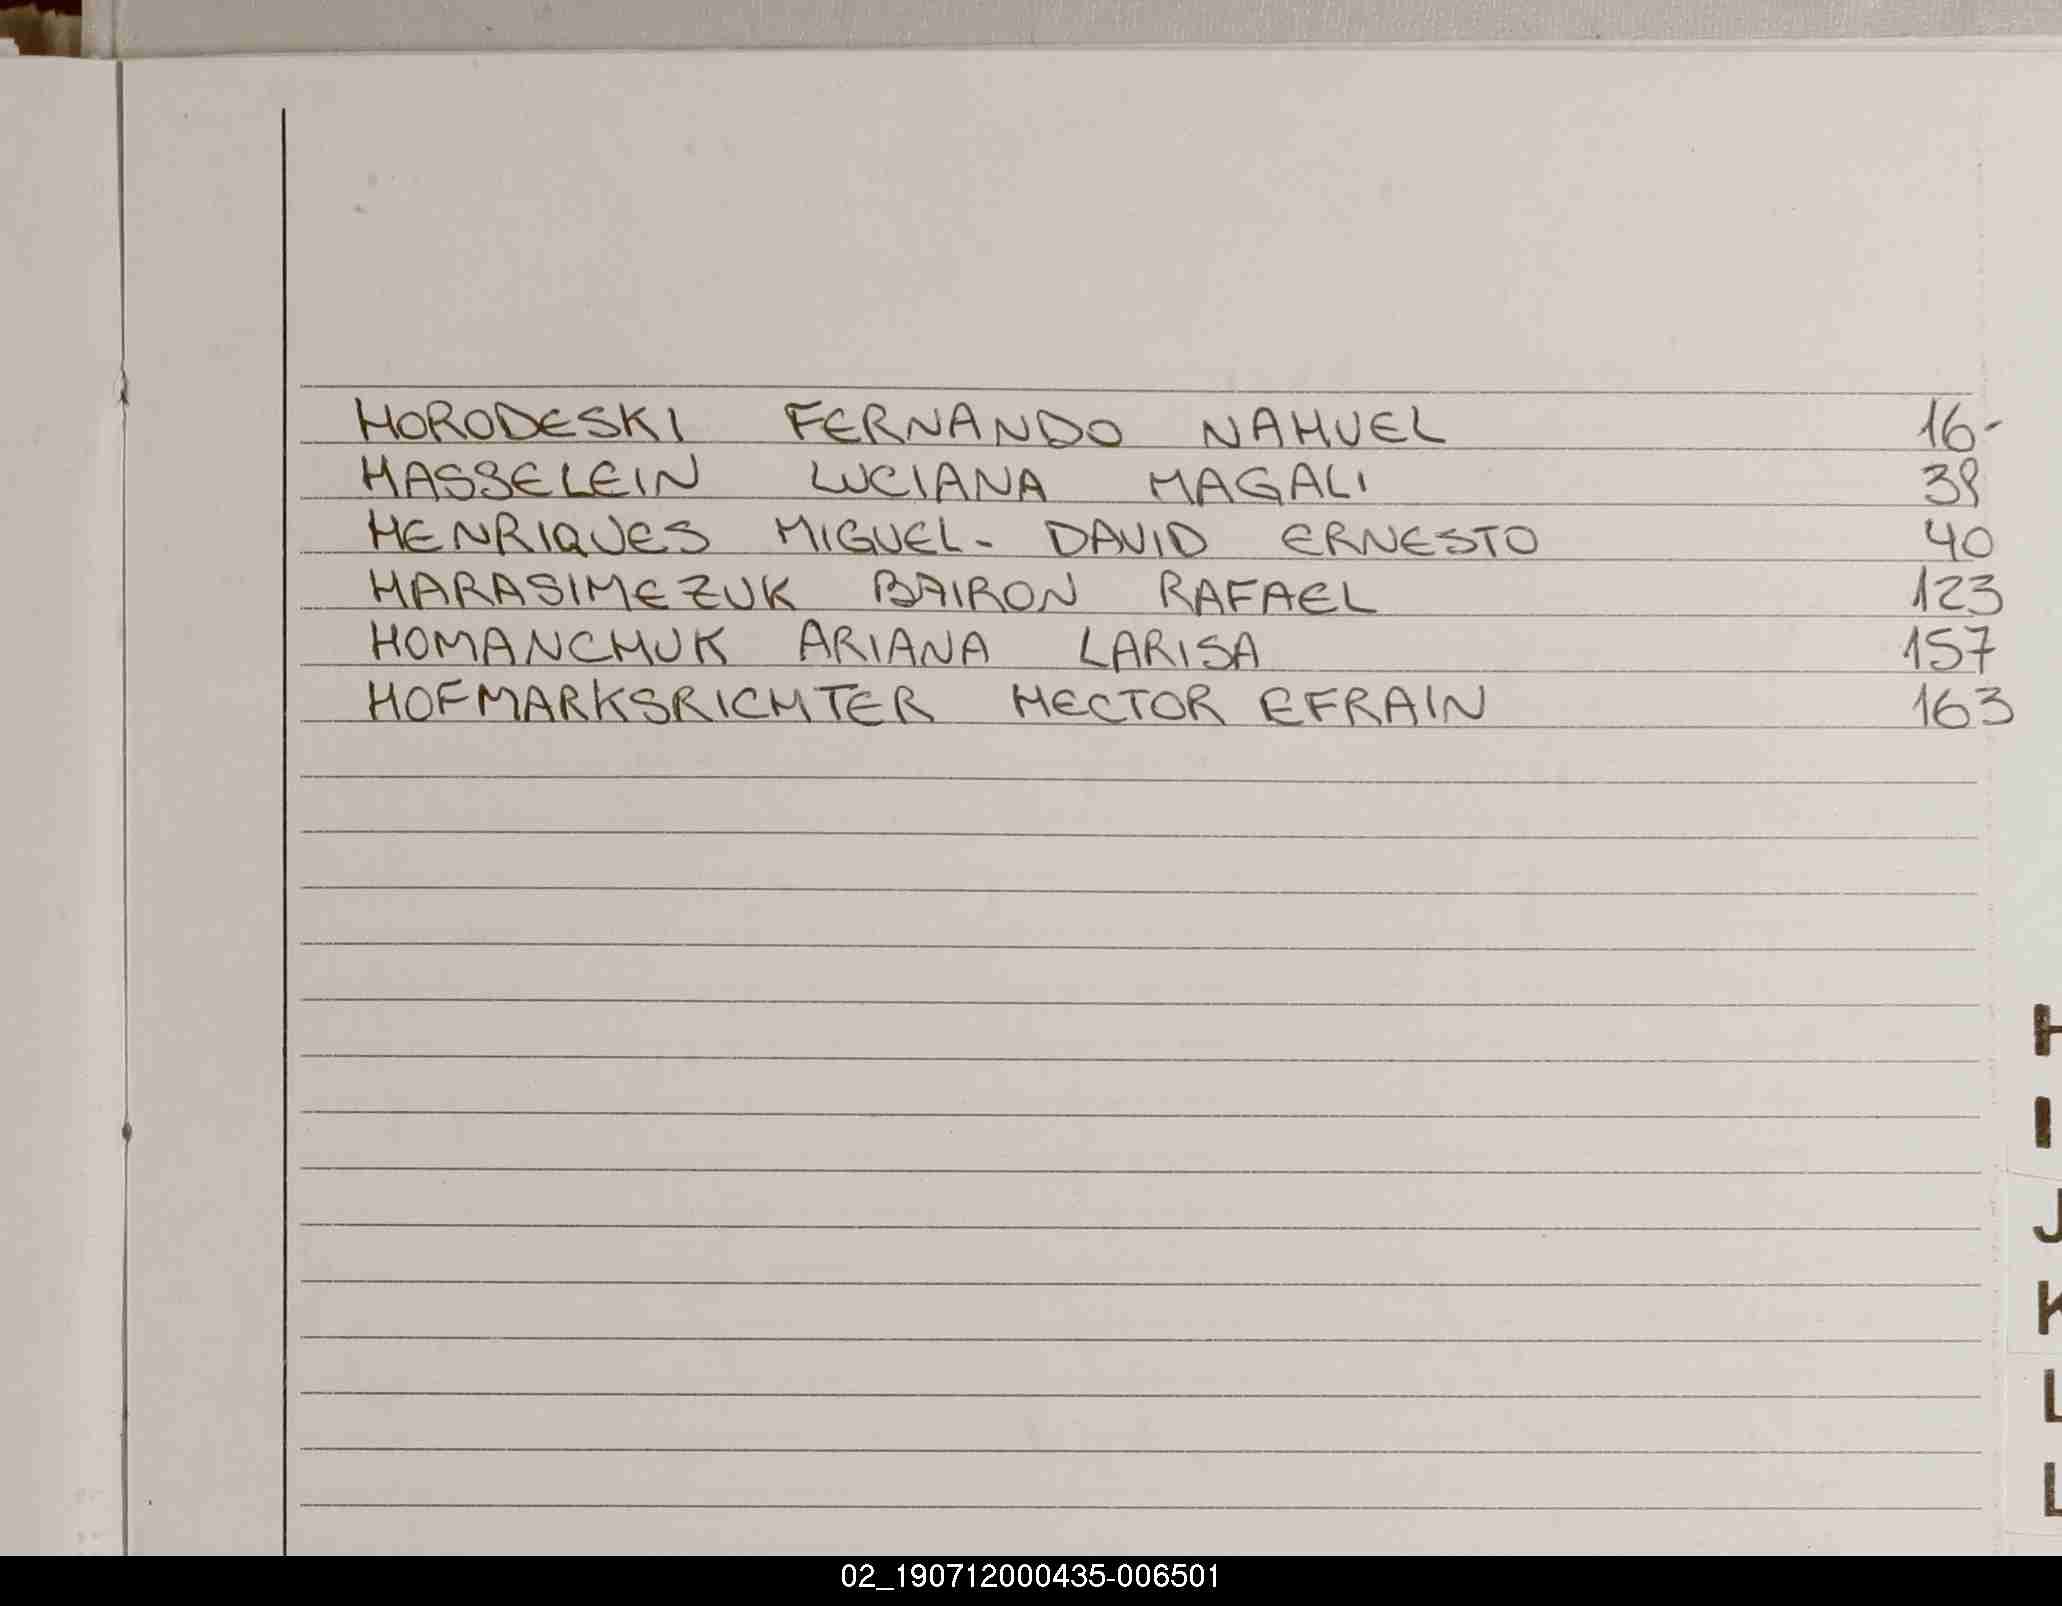 HORODESKI FERNANDO NAHUEL 16-
HASSELEIN LUCIANA MAGALI 39
HENRIQUES MIGUEL- DAVID ERNESTO 40
HARASIMEZUK BAIRON RAFAEL 123
HOMANCHUK ARIANA LARISA 157
HOFMARKSRICHTER HECTOR EFRAIN 163
H
I
J
K
L
L
02_190712000435-006501